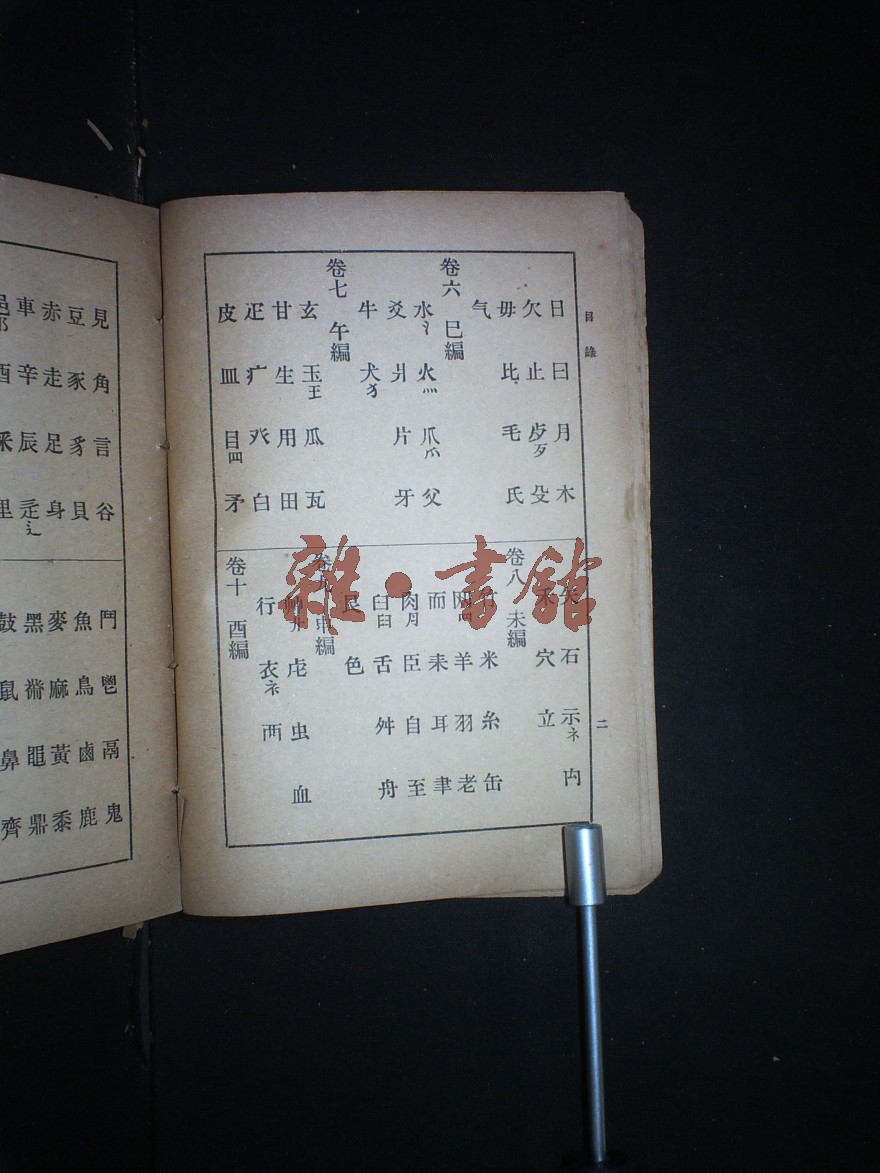 目錄
二
日 曰 月 木
欠 止 歺歹 殳
毋 比 毛 氏
气
卷六 巳編
水氵 火灬 爪爫 父
爻 爿 片 牙
牛 犬犭
卷七 午編
玄 玉王 瓜 瓦
甘 生 用 田
疋 疒 癶 白
皮 皿 目罒 矛
矢 石 示礻 禸
禾 穴 立
卷八 未編
竹 米 糸 缶
网罒 羊 羽 老
而 耒 耳 聿
肉月 臣 自 至
臼𦥑 舌 舛 舟
艮 色
卷九 申編
艸艹 虍 虫 血
行 衣衤 襾
卷十 酉編
見 角 言 谷
豆 豕 豸 貝
赤 走 足 身
車 辛 辰 辵辶
邑阝 酉 釆 里
鬥 鬯 鬲 鬼
魚 鳥 鹵 鹿
麥 麻 黃 黍
黑 黹 黽 鼎
鼓 鼠 鼻 齊
雜·書館